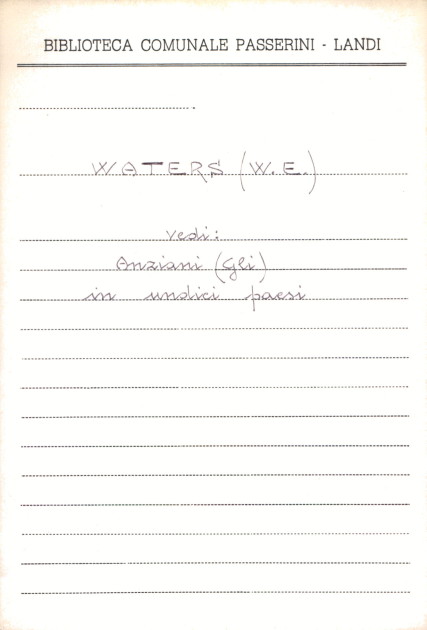 BIBLIOTECA COMUNALE PASSERINI - LANDI
WATERS (W. E.)
vedi:
Anziani (Gli)
in undici paesi